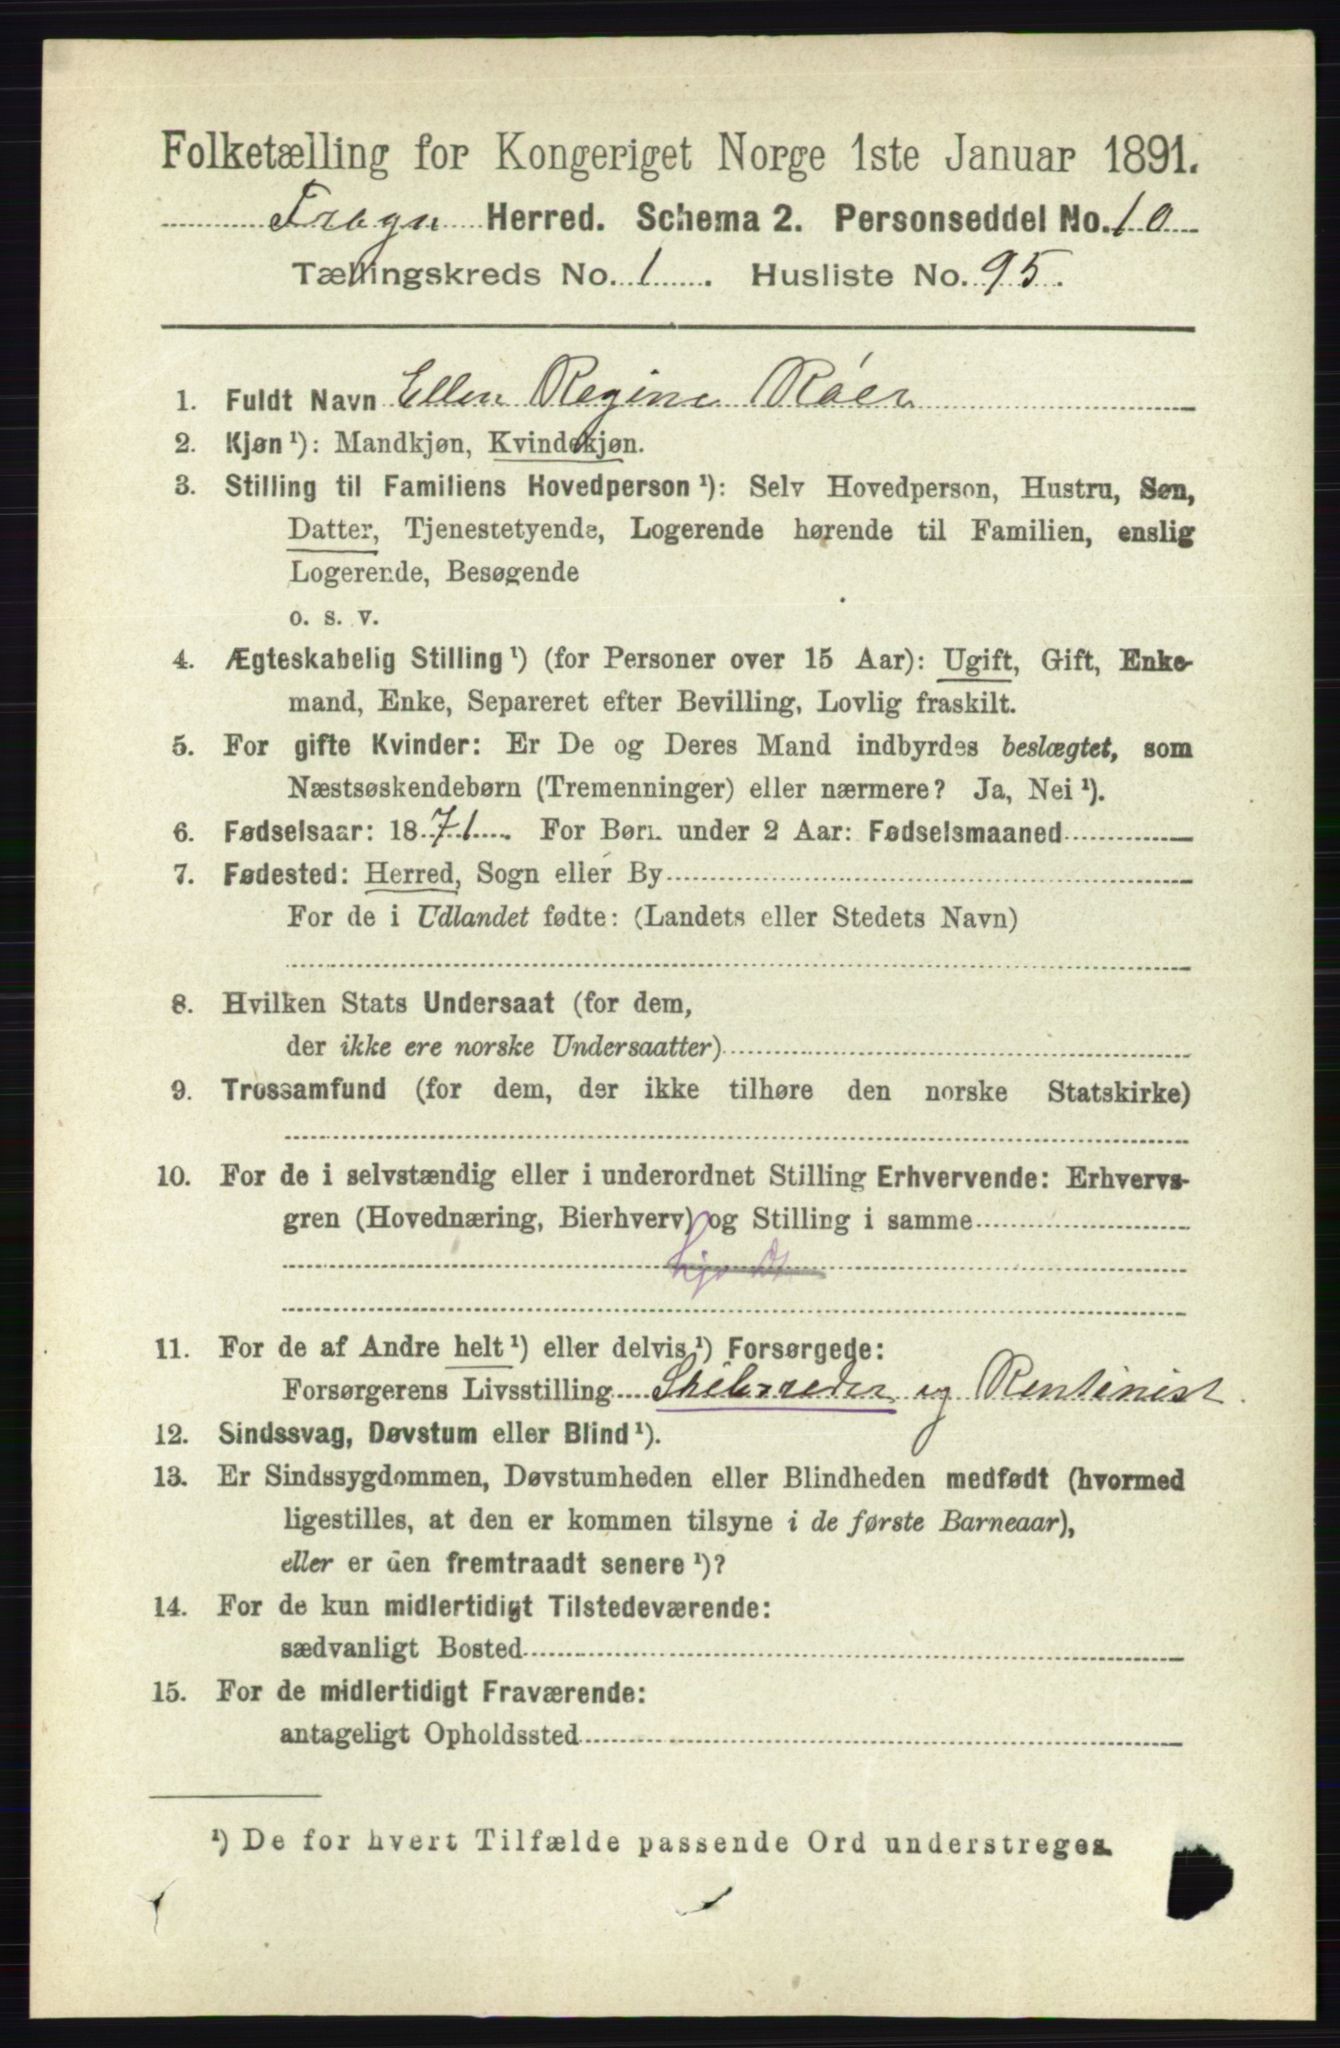 Folketælling for Kongeriget Norge 1ste Januar 1891.
Frogn Herred. Schema 2. Personseddel No. 10
Tællingskreds No. 1. Husliste No. 95.
1. Fuldt Navn Ellen Regine Röer
2. Kjøn ¹): Mandkjøn, Kvindekjøn.
3. Stilling til Familiens Hovedperson ¹): Selv Hovedperson, Hustru, Søn,
Datter, Tjenestetyende, Logerende hørende til Familien, enslig
Logerende, Besøgende
o. s. v.
4. Ægteskabelig Stilling ¹) (for Personer over 15 Aar): Ugift, Gift, Enke-
mand, Enke, Separeret efter Bevilling, Lovlig fraskilt.
5. For gifte Kvinder: Er De og Deres Mand indbyrdes beslægtet, som
Næstsøskendebørn (Tremenninger) eller nærmere? Ja, Nei ¹).
6. Fødselsaar: 1871. For Børn under 2 Aar: Fødselsmaaned
7. Fødested: Herred, Sogn eller By
For de i Udlandet fødte: (Landets eller Stedets Navn)
8. Hvilken Stats Undersaat (for dem,
der ikke ere norske Undersaatter)
9. Trossamfund (for dem, der ikke tilhøre den norske Statskirke)
10. For de i selvstændig eller i underordnet Stilling Erhvervende: Erhvervs-
gren (Hovednæring, Bierhverv) og Stilling i samme
11. For de af Andre helt ¹) eller delvis ¹) Forsørgede:
Forsørgerens Livsstilling Skibsreder og Rentenist.
12. Sindssvag, Døvstum eller Blind ¹).
13. Er Sindssygdommen, Døvstumheden eller Blindheden medfødt (hvormed
ligestilles, at den er kommen tilsyne i de første Barneaar),
eller er den fremtraadt senere ¹)?
14. For de kun midlertidigt Tilstedeværende:
sædvanligt Bosted
15. For de midlertidigt Fraværende:
antageligt Opholdssted
¹) De for hvert Tilfælde passende Ord understreges.